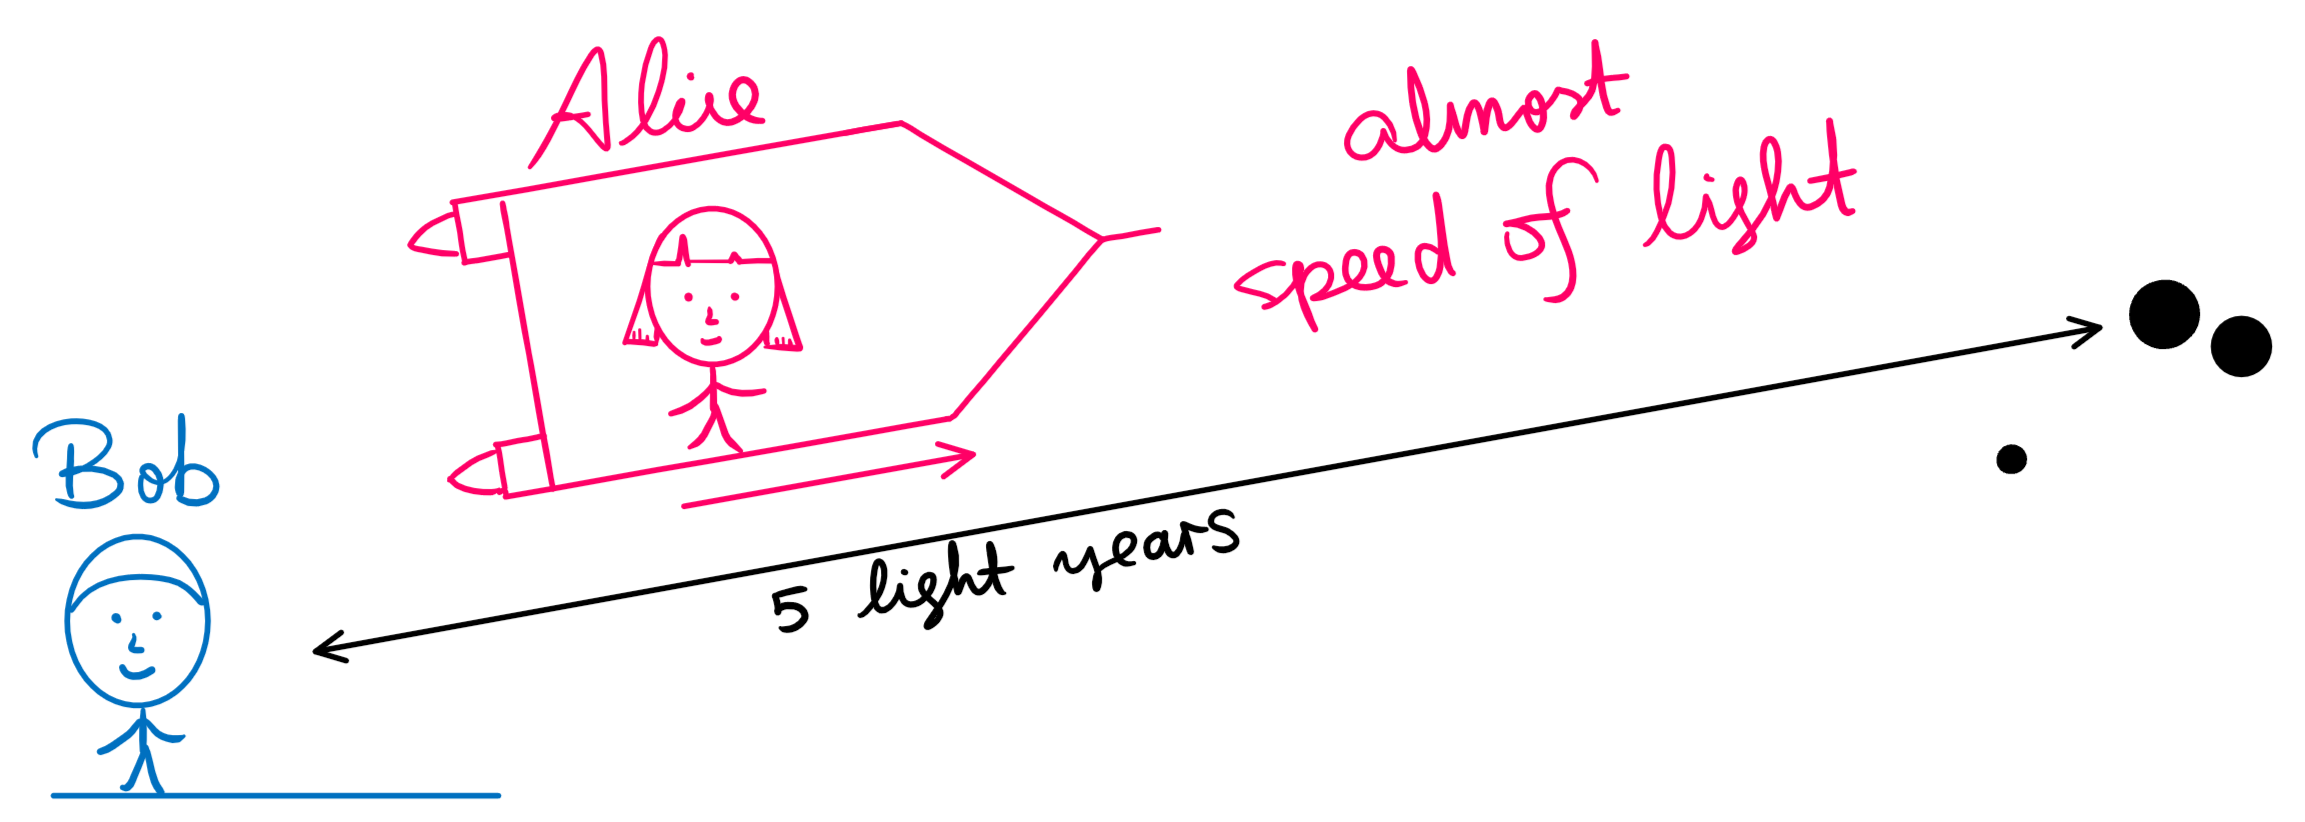 Alice
almost
speed of light
Bob
5 light years